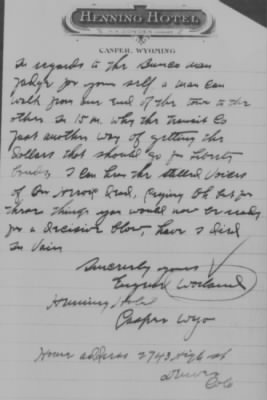 HENNING HOTEL
CASPER, WYOMING
In regards to the Bunco man
judge for your self a man can
walk from one end of the town to the
other in 15 m. why the Transit Co
just another way of getting the
dollars that should go for Liberty
Bonds. I can hear the stilled Voices
of Our Heroic dead, Crying Oh but for
those things you would now be ready
for a decisive blow, have I died
in Vain
Sincerely yours
Eugene
Henning Hotel
Casper Wyo
Home address 2743 High st
Denver
Colo